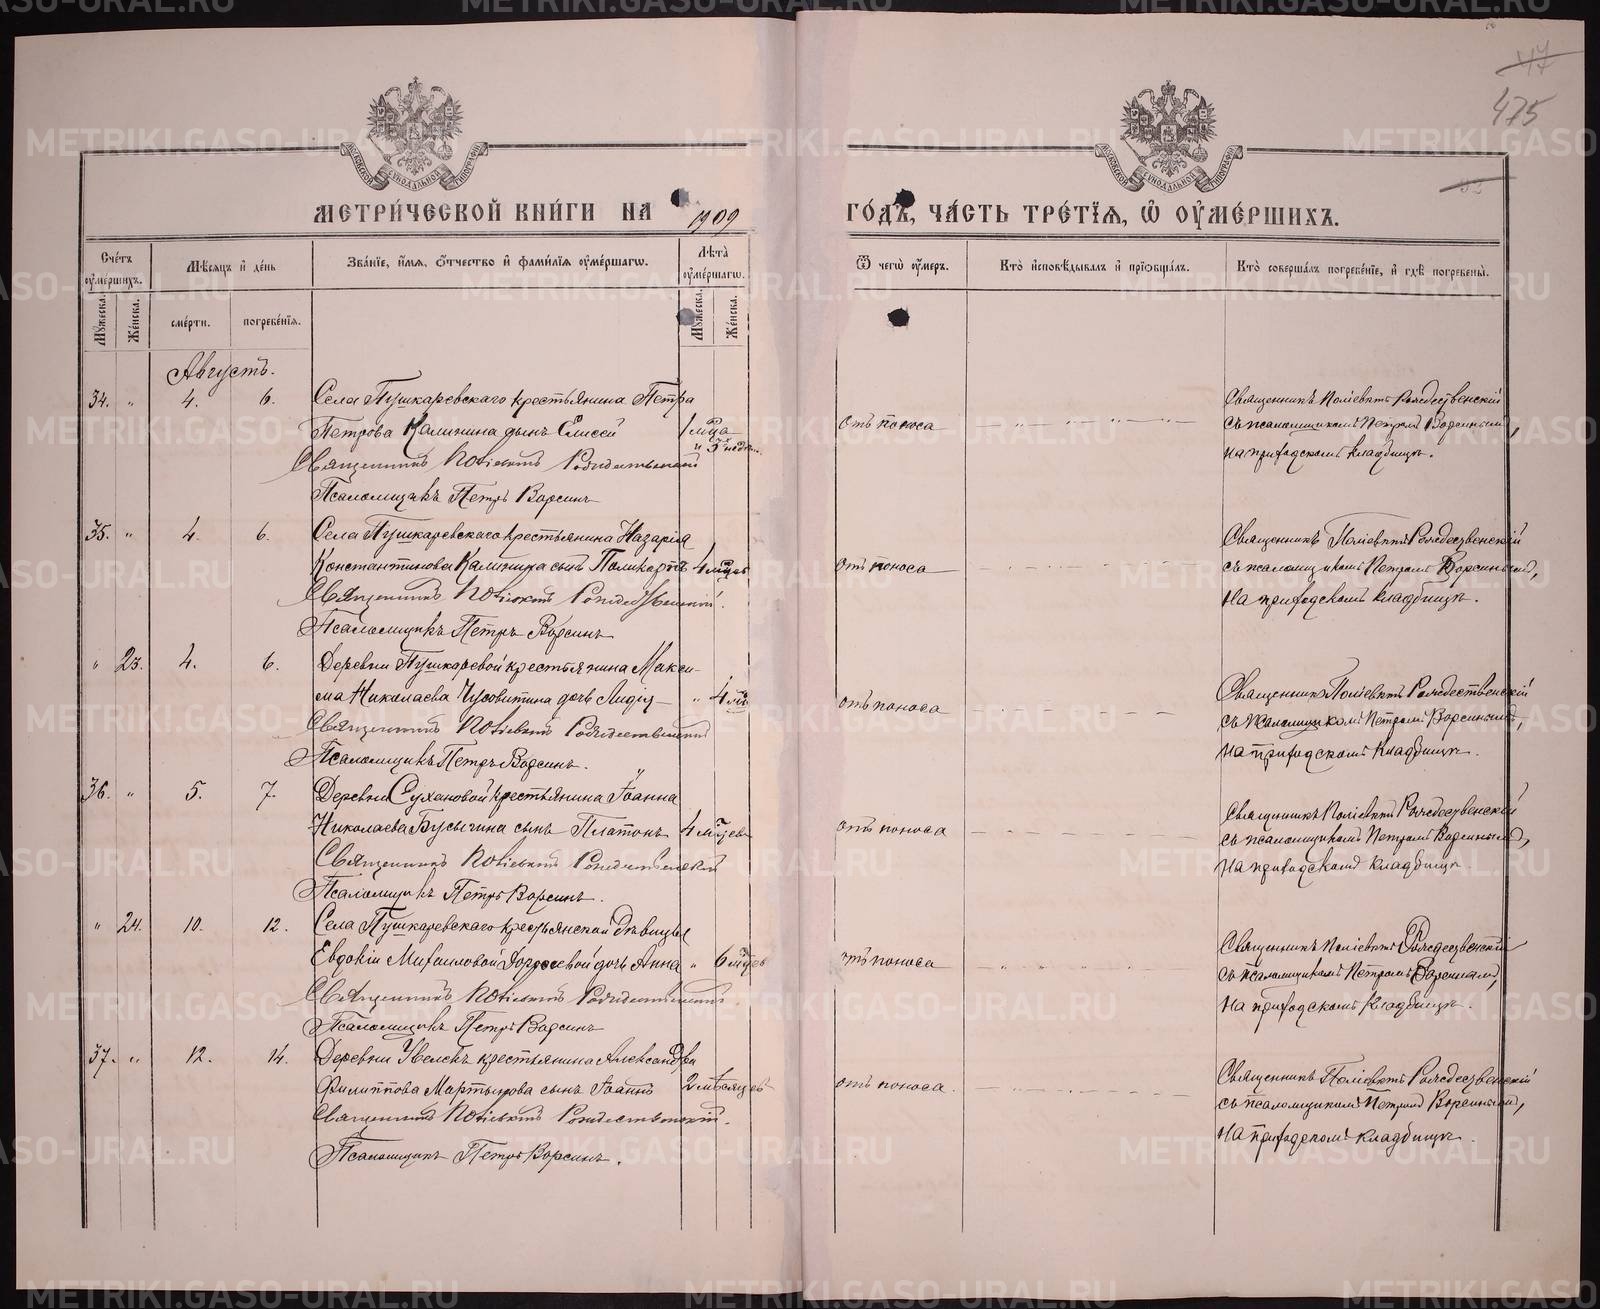 475
МЕТРИ́ЧЕСКОЙ КНИ́ГИ НА 1909 ГО́ДЪ, ЧА́СТЬ ТРЕ́ТІѦ, Ѡ҆ ОУ҆МЕ́РШИХЪ.
Сче́тъ оу҆ме́ршихъ.
Мѣ́сяцъ и҆ де́нь
Зва́нїе, и҆́мѧ, ѻ҆́тчество и҆ фами́лїѧ оу҆ме́ршагѡ.
Лѣ́та оу҆ме́ршагѡ.
Ѿ чегѡ̀ оу҆́меръ.
Кто̀ и҆сповѣ́дывалъ и҆ прїѡбща́лъ.
Кто̀ соверша́лъ погребе́нїе, и҆ гдѣ̀ погребены̀.
Му́жеска.
Же́нска.
сме́рти.
погребе́нїѧ.
Му́жеска.
Же́нска.
Августъ.
34. " 4. 6. Села Пушкаревскаго крестьянина Петра
Петрова Калинина сынъ Елисей 1 мца и 3 недѣ.
Священникъ Поліевктъ Рождественскій
Псаломщикъ Петръ Ворсинъ
отъ поноса
Священникъ Поліевктъ Рождественскій
съ псаломщикомъ Петромъ Ворсинымъ,
на приходскомъ кладбищѣ.
35. " 4. 6. Села Пушкаревскаго крестьянина Назарія
Константинова Калинина сынъ Поликарпъ 4 мцевъ
Священникъ Поліевктъ Рождественскій.
Псаломщикъ Петръ Ворсинъ
отъ поноса
Священникъ Поліевктъ Рождественскій
съ псаломщикомъ Петромъ Ворсинымъ,
на приходскомъ кладбищѣ.
" 23. 4. 6. Деревни Пушкаревой крестьянина Макси-
ма Николаева Чусовитина дочь Лидія " 4 мцъ
Священникъ Поліевктъ Рождественскій
Псаломщикъ Петръ Ворсинъ.
отъ поноса
Священникъ Поліевктъ Рождественскій
съ псаломщикомъ Петромъ Ворсинымъ,
на приходскомъ кладбищѣ.
36. " 5. 7. Деревни Сухановой крестьянина Іоанна
Николаева Бусыгина сынъ Платонъ 4 мцевъ
Священникъ Поліевктъ Рождественскій
Псаломщикъ Петръ Ворсинъ.
отъ поноса
Священникъ Поліевктъ Рождественскій
съ псаломщикомъ Петромъ Ворсинымъ,
на приходскомъ кладбищѣ
" 24. 10. 12. Села Пушкаревскаго крестьянской дѣвицы
Евдокіи Михаиловой дочь Анна " 6 мцевъ
Священникъ Поліевктъ Рождественскій.
Псаломщикъ Петръ Ворсинъ
отъ поноса
Священникъ Поліевктъ Рождественскій
съ псаломщикомъ Петромъ Ворсинымъ,
на приходскомъ кладбищѣ.
37. " 12. 14. Деревни крестьянина Александра
Филиппова Мартынова сынъ Іоаннъ 2 мѣсяцевъ
Священникъ Поліевктъ Рождественскій.
Псаломщикъ Петръ Ворсинъ.
отъ поноса.
Священникъ Поліевктъ Рождественскій
съ псаломщикомъ Петромъ Ворсинымъ,
на приходскомъ кладбищѣ.
METRIKI.GASO-URAL.RU